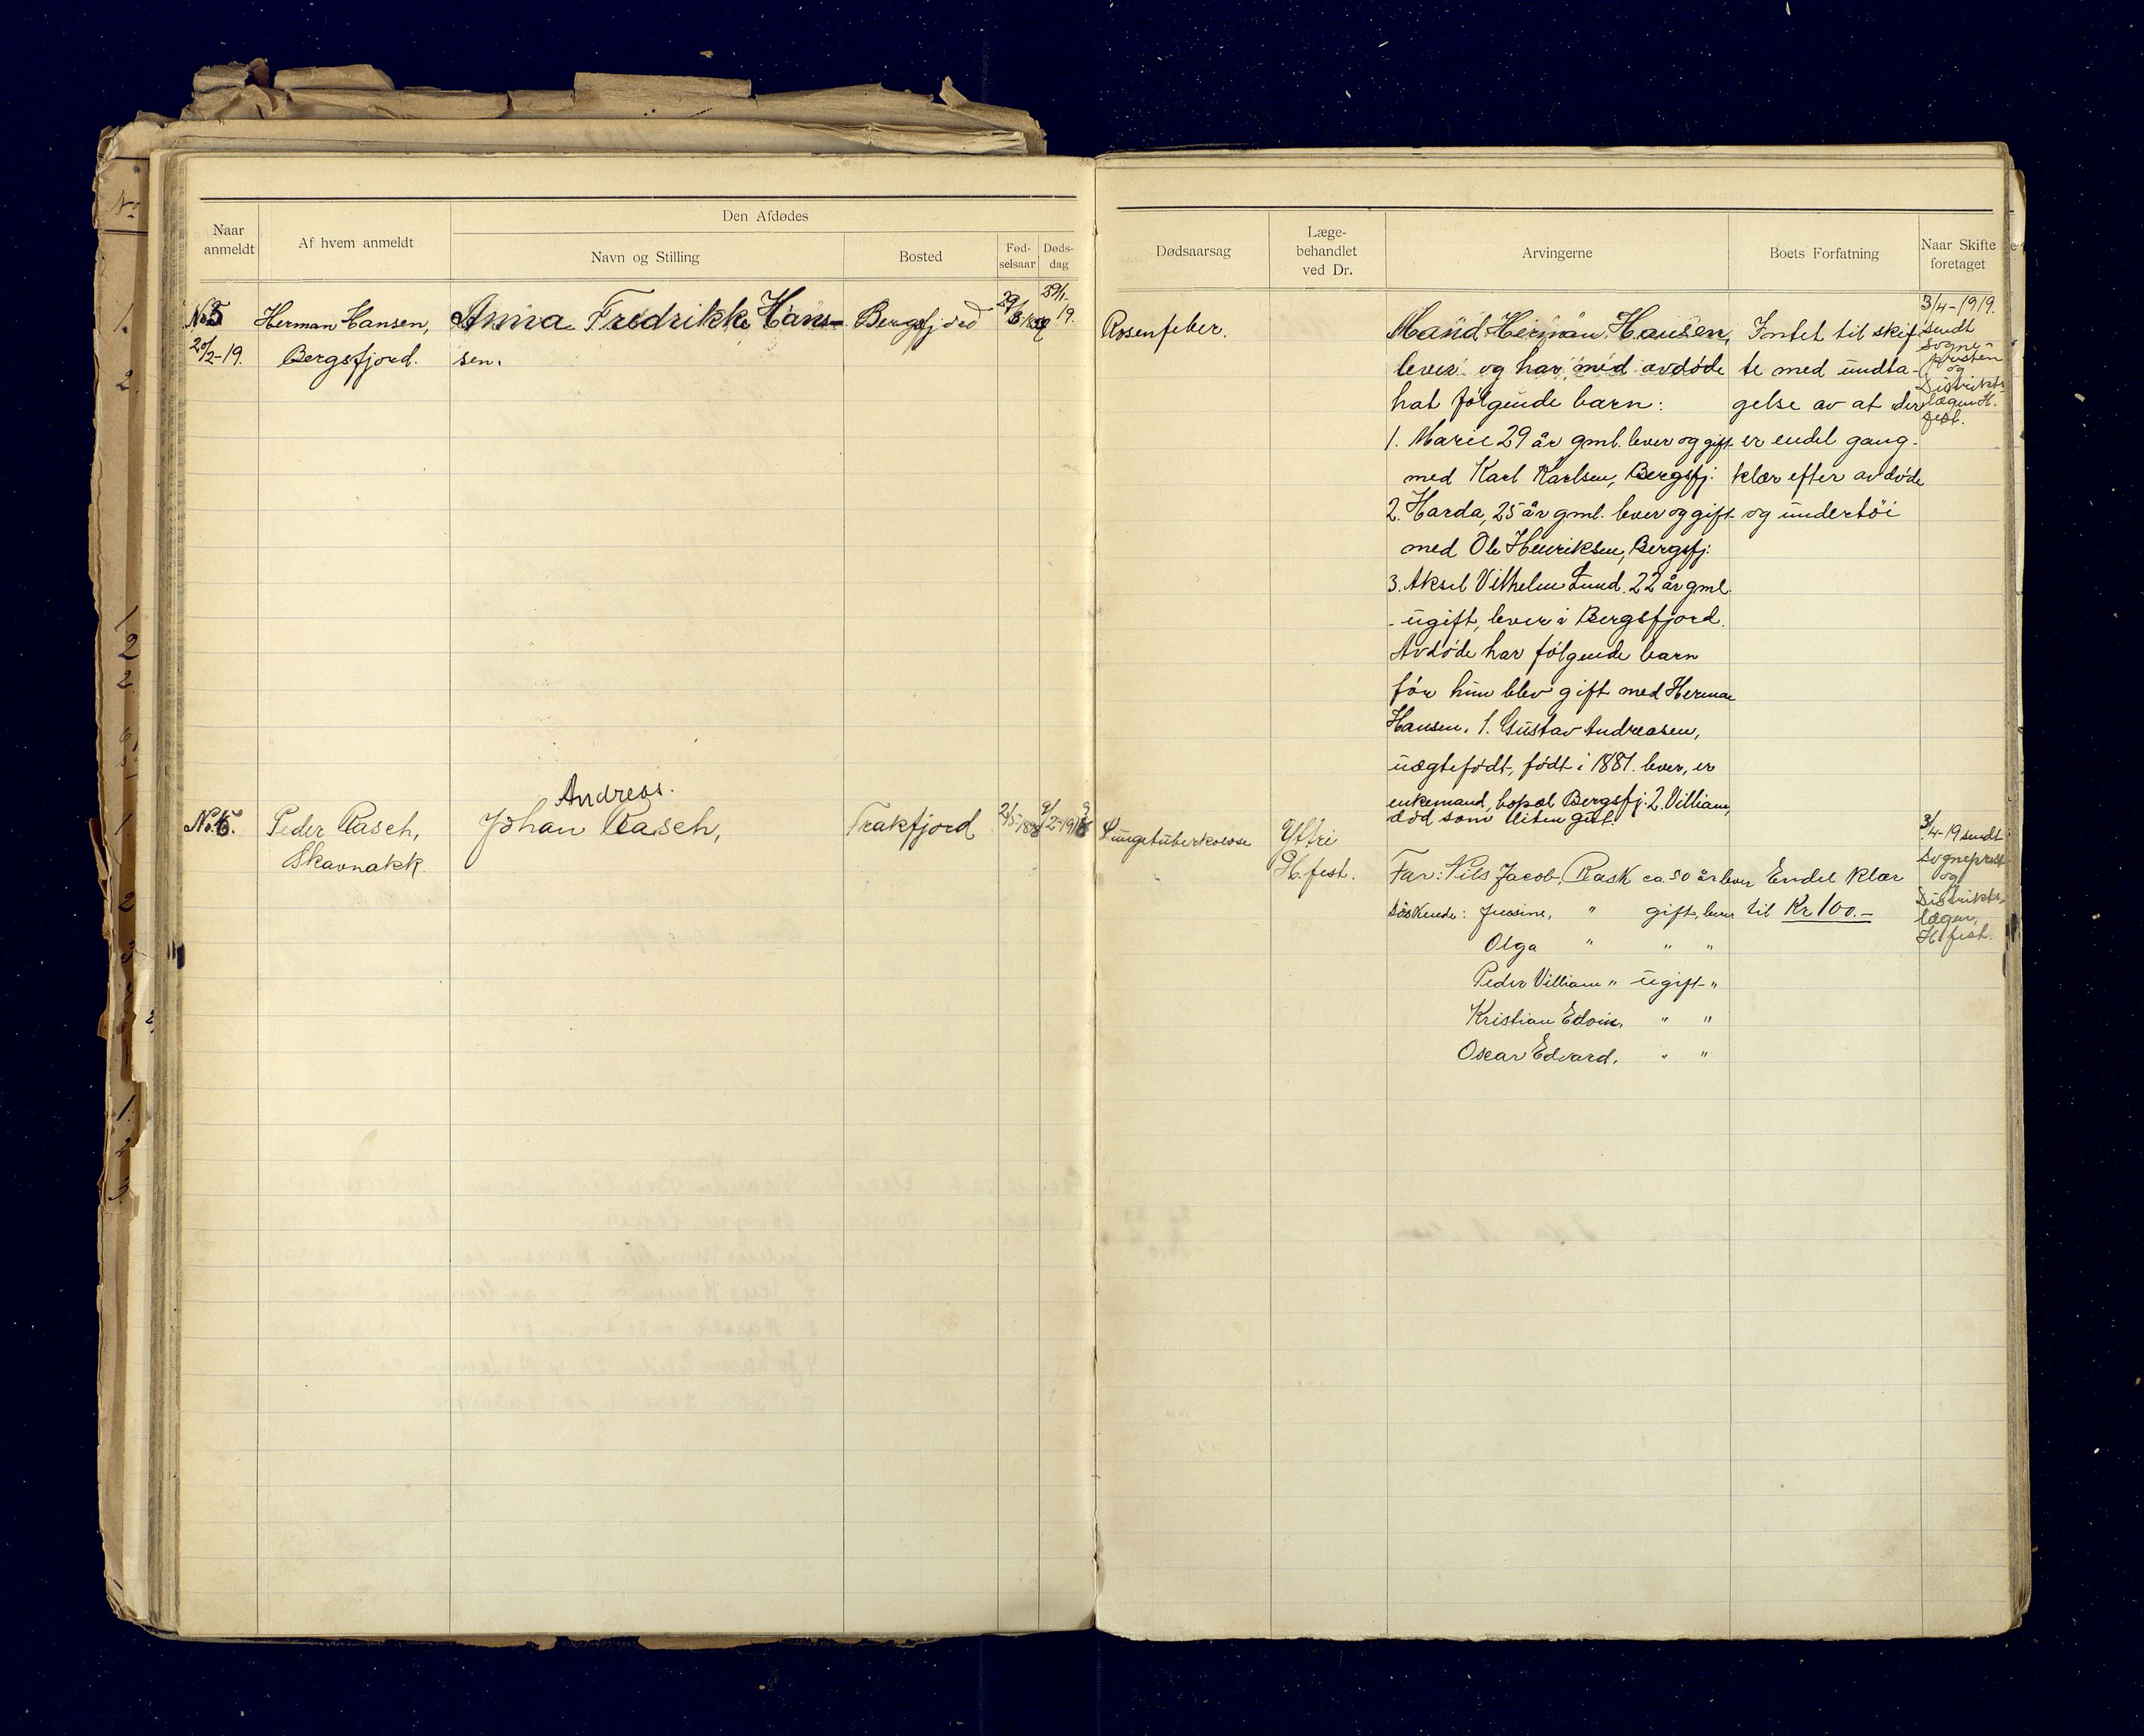 Naar anmeldt
Af hvem anmeldt
Den Afdødes
Navn og Stilling
Bosted
Fød-
selsaar
Døds-
dag
Dødsaarsag
Læge-
behandlet
ved Dr.
Arvingerne
Boets Forfatning
Naar Skifte
foretaget
No. 5
20/2-19.
Herman Hansen,
Bergsfjord.
Anna Fredrikke Han-
sen.
Bergsfjord
29/1-
19.
Rosenfeber.
Mand Herman Hansen,
lever og har med avdøde
hat følgende barn:
1. Marie 29 år gml. lever og gift
med Karl Karlsen, Bergsfj.
2. Harda, 25 år gml. lever og gift
med Ole Henriksen, Bergsfj.
3. Aksel Vilhelm Lund. 22 år gml.
- ugift, lever i Bergsfjord.
Avdøde har følgende barn
før hun blev gift med Herman
Hansen. 1. Gustav Andreasen,
uægtefødt, født i 1881. lever, er
enkemand, bopæl Bergsfj. 2. Villiam,
død som liten gut.
Intet til skif-
te med undta-
gelse av at der
er endel gang-
klær efter avdøde
og undertöi
3/4-1919.
sendt
Sogne-
presten
og
Distrikts-
lægen H.
fest.
No. 6.
Peder Rasch,
Skavnakk.
Andreas.
Johan Rasch,
Frakfjord
Lungetuberkolose
Yttri
H.fest.
Far: Nils Jacob Rask ca. 50 år lever
Søskende: Jussine, " gift, lever
Olga " " "
Peder Villiam " ugift "
Kristian Edvin, " "
Oscar Edvard, " "
Endel klær
til Kr 100.-
3/4-19 sendt
Sogneprest
og
Distrikts-
lægen,
H.fest.